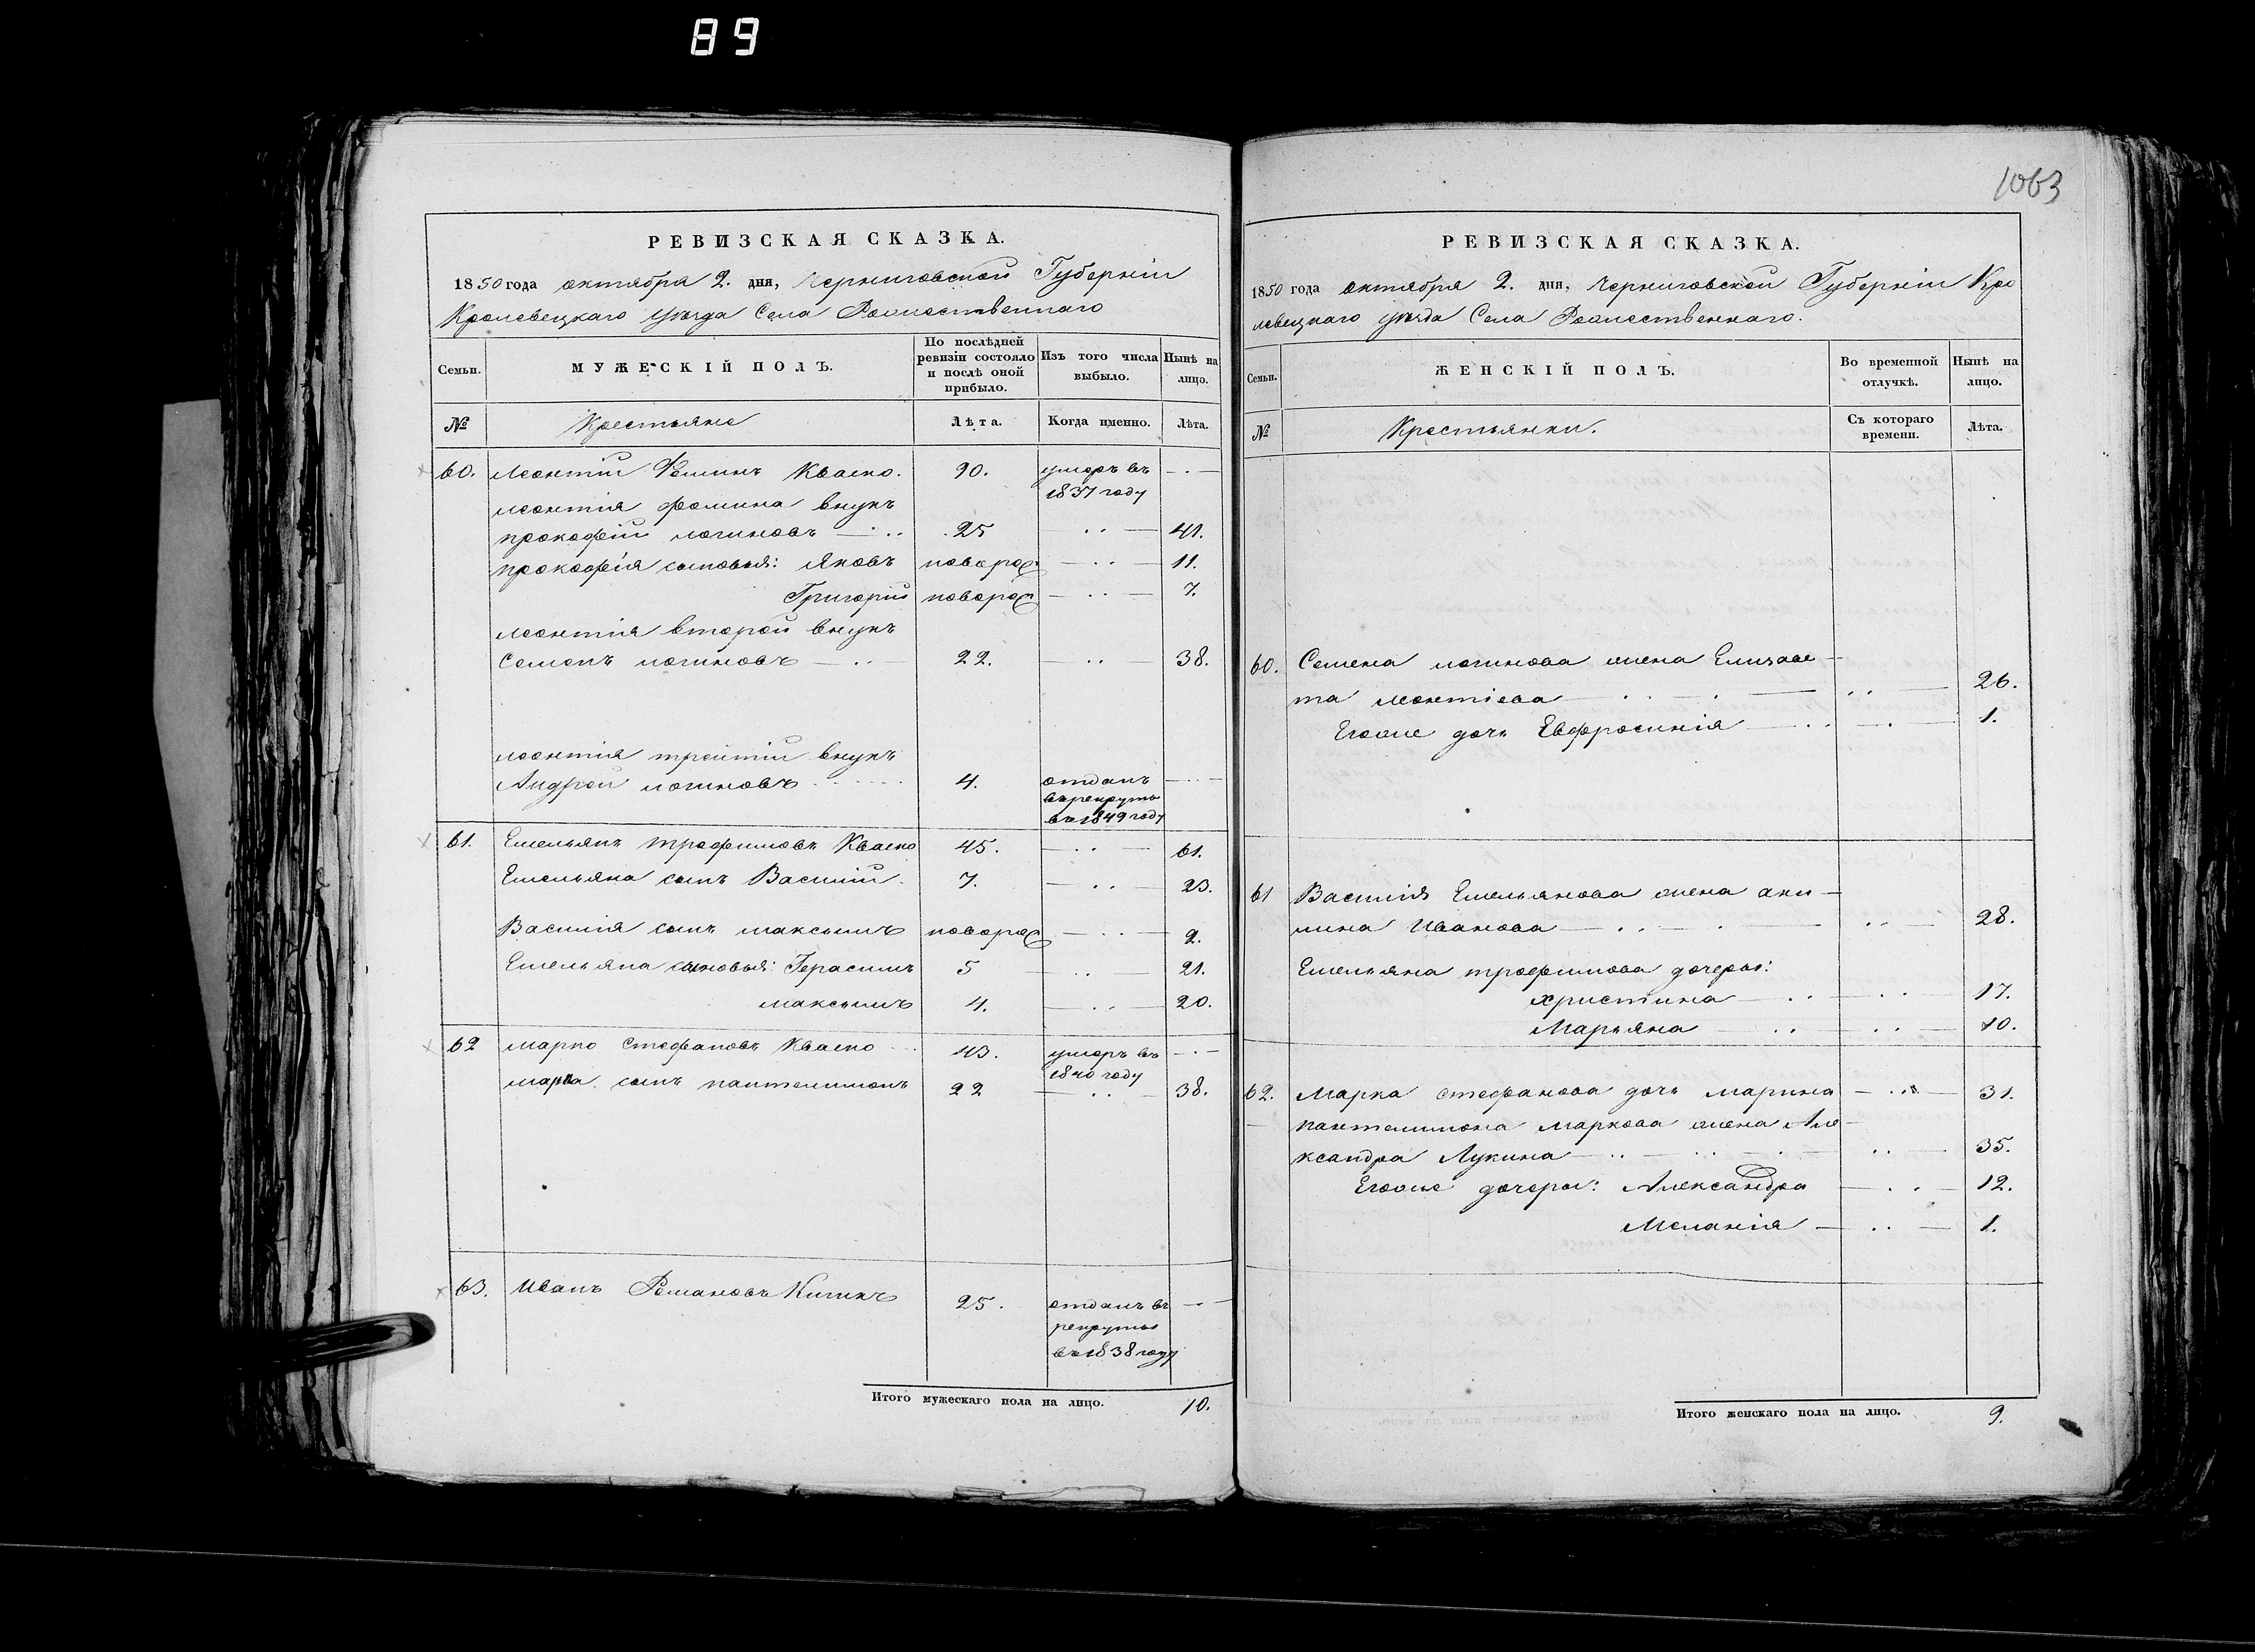 89
1063
РЕВИЗСКАЯ СКАЗКА.
1850 года октября 2. дня, Черниговской Губерніи
Кролевецкаго уѣзда Села Рожественнаго
Семьи.
МУЖЕСКІЙ ПОЛЪ.
По послѣдней ревизіи состояло и послѣ оной прибыло.
Изъ того числа выбыло.
Нынѣ на лицо.
№ Крестьяне Лѣта. Когда именно. Лѣта.
60. Леонтій Фоминъ Кваско. 90. умеръ въ — . —
1837 году
Леонтія Фомина внукъ
прокофій логиновъ — . . 25 . . — 41.
прокофія сыновья: Яковъ новорож — . . — 11.
Григорій новорож — . . — 7.
леонтія второй внукъ
Семенъ логиновъ — . . — 22. — . . — 38.
леонтія третій внукъ
Андрей логиновъ 4. отданъ — . . —
въ рекруты
въ 1849 году
61. Емельянъ трофимовъ Кваско 45. — . . — 61.
Емельяна сынъ Василій. 7. — . . — 23.
Василія сынъ максымъ новорож — . . — 2.
Емельяна сыновья: Герасимъ 5 — . . — 21.
максымъ 4. — . . — 20.
62 марко Стефановъ Кваско 43. умеръ въ — . —
1840 году
марка сынъ пантелимонъ 22 — . . — 38.
63. Иванъ Романовъ Кигикъ 25. отданъ въ — . —
рекруты
въ 1838 году
Итого мужескаго пола на лицо. 10.
РЕВИЗСКАЯ СКАЗКА.
1850 года октября 2. дня, Черниговской Губерніи Кро
левецкаго уѣзда Села Рожественнаго.
Семьи.
ЖЕНСКІЙ ПОЛЪ.
Во временной отлучкѣ.
Нынѣ на лицо.
№ Крестьянки. Съ котораго времени. Лѣта.
60. Семена логинова жена Елизаве —
та леонтіева — . . — . — . . — 26.
Егоже дочь Евфросинія — . . — . — 1.
61 Василія Емельянова жена аки —
лина Иванова — . . — . — . . — 28.
Емельяна трофимова дочеры:
христина — . . — . . — 17.
Марьяна — . . — . . — 10.
62. Марка стефанова дочь марина — . . — 31.
пантелимона маркова жена Але —
ксандра Лукина — . . — . . — 35.
Егоже дочеры: Александра — . . — 12.
Меланія — . . — 1.
Итого женскаго пола на лицо. 9.